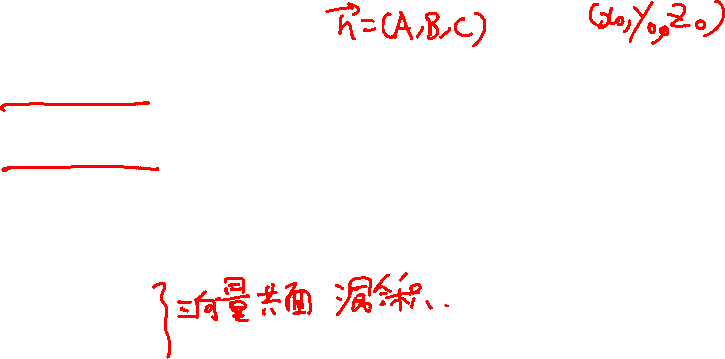 n⃗=(A,B,C) (x₀,y₀,z₀)
三向量共面 混合积..